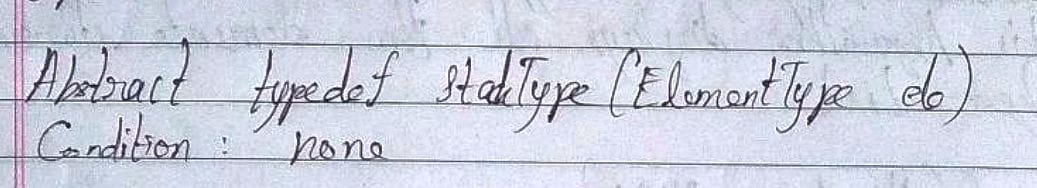 Abstract typedef StackType (ElementType ele)
Condition : none